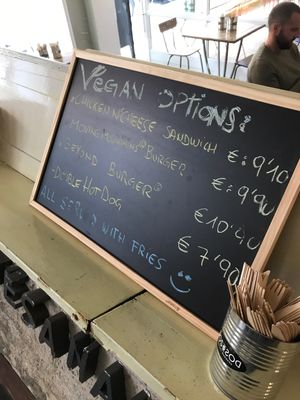 VEGAN OPTIONS:
- CHICKEN'CHEESE SANDWICH €: 9'10
- MOVING MOUNTAINS® BURGER €: 9'90
- BEYOND BURGER® €10'90
- DOBLE HOT DOG €7'90
ALL SERVED WITH FRIES